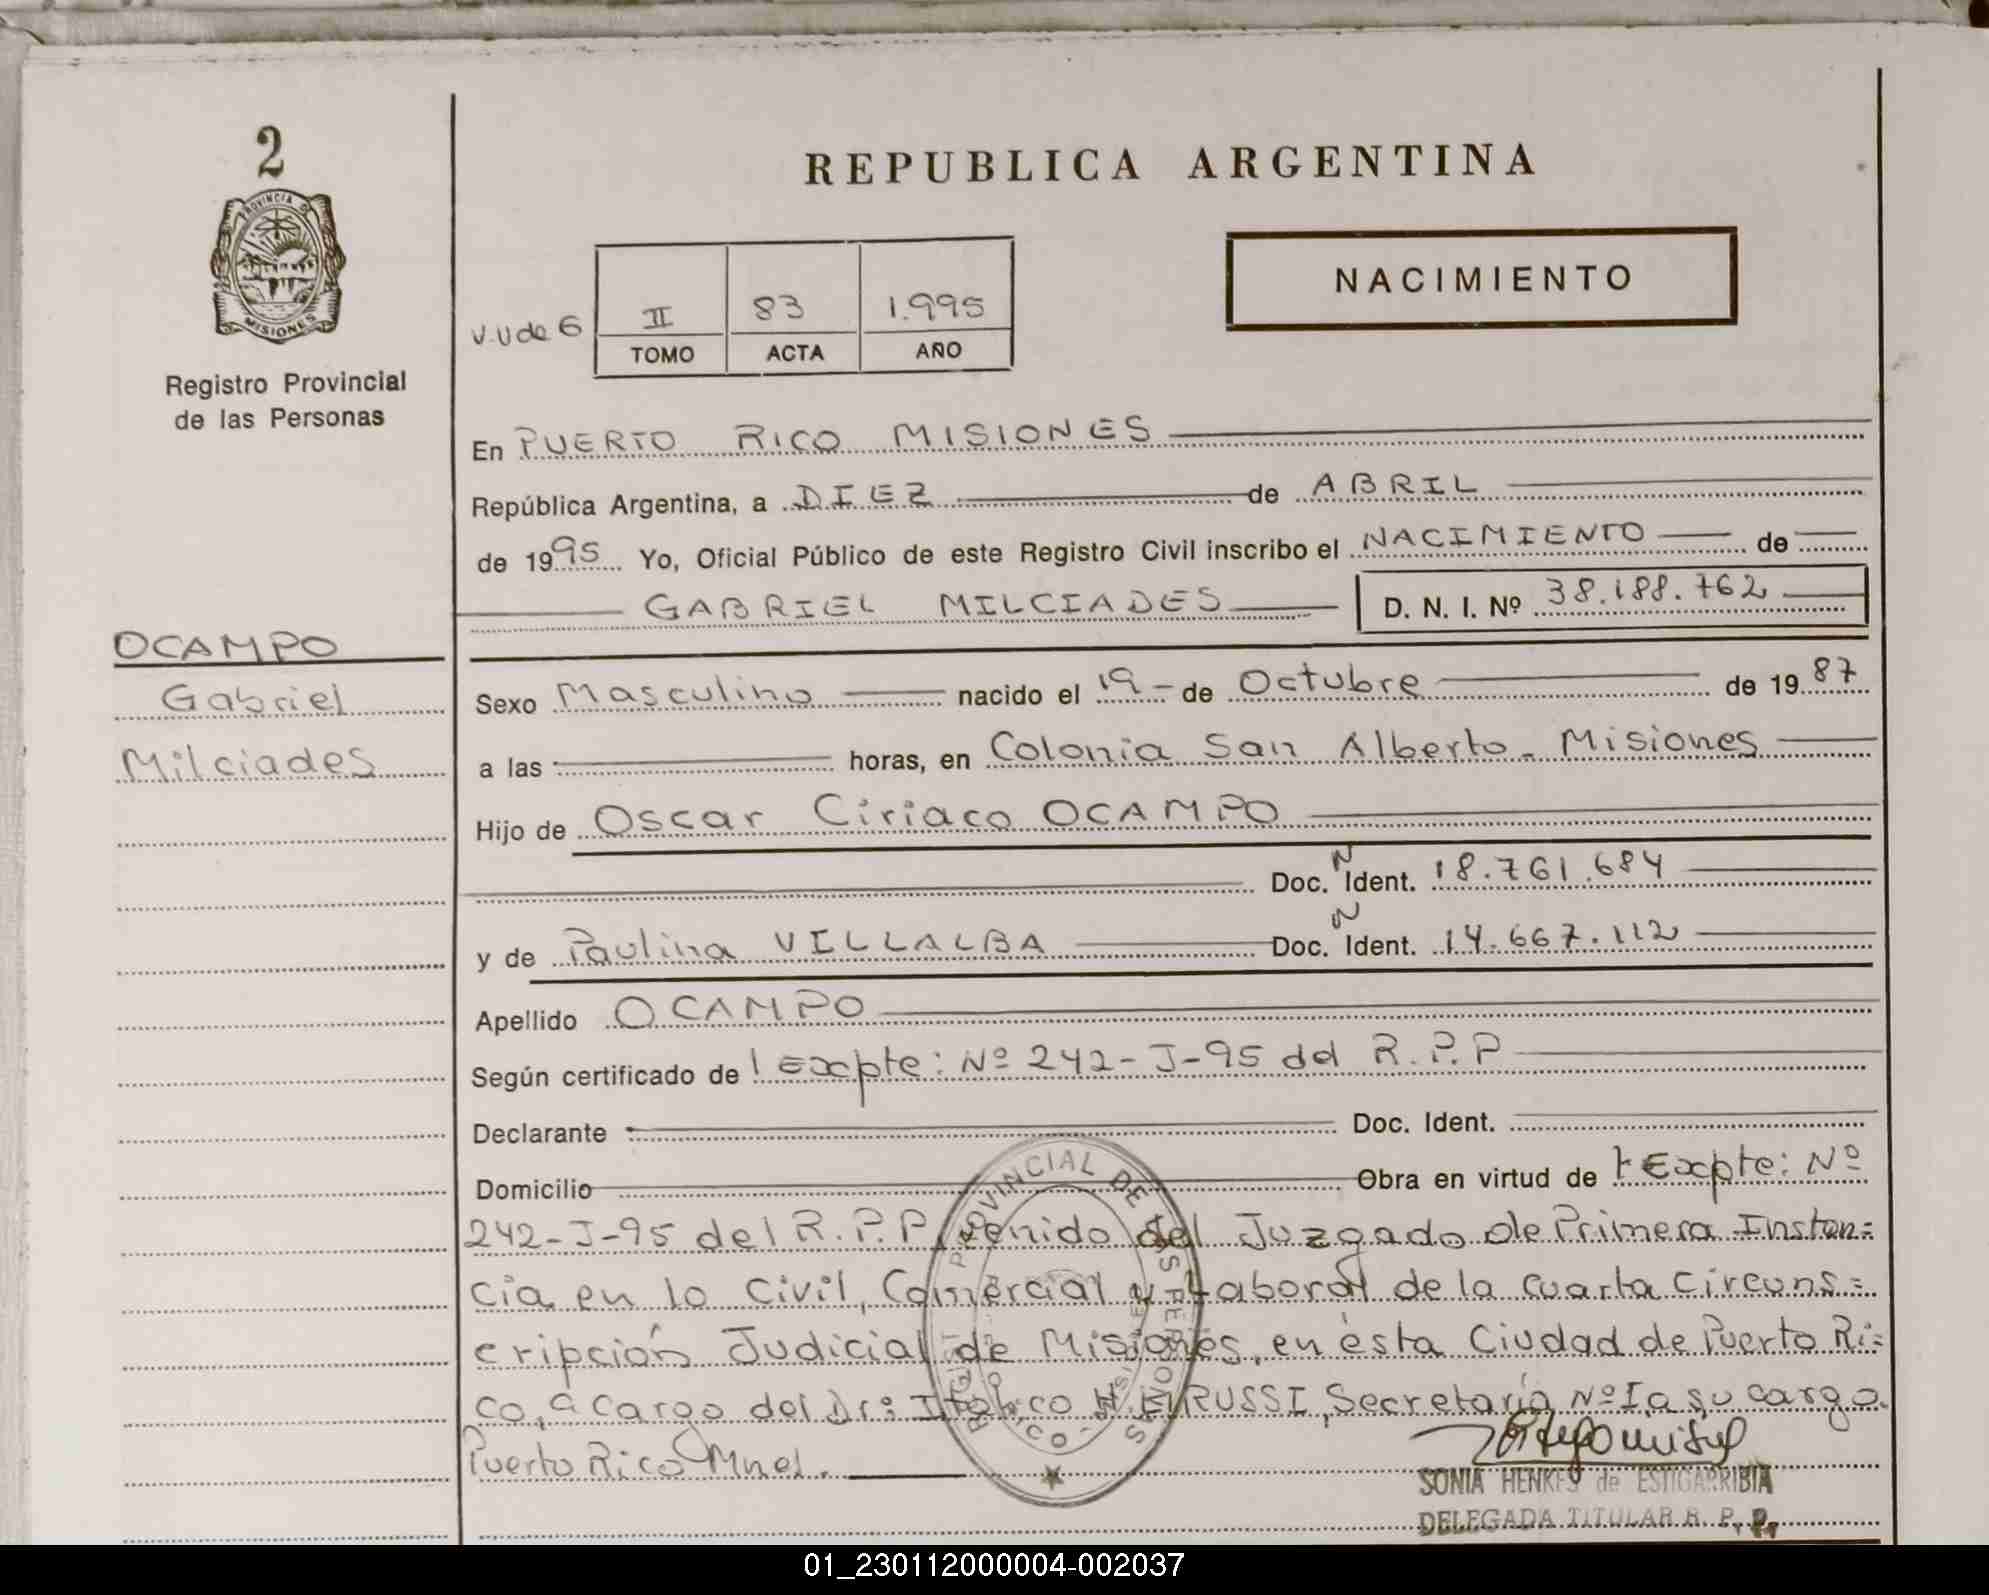 2
PROVINCIA DE
MISIONES
Registro Provincial
de las Personas
REPUBLICA ARGENTINA
NACIMIENTO
II 83 1.995
TOMO ACTA AÑO
En PUERTO RICO MISIONES
República Argentina, a DIEZ de ABRIL
de 1995 Yo, Oficial Público de este Registro Civil inscribo el NACIMIENTO de
GABRIEL MILCIADES D. N. I. Nº 38.188.762
OCAMPO
Gabriel
Milciades
Sexo Masculino nacido el 19 - de Octubre de 1987
a las horas, en Colonia San Alberto - Misiones
Hijo de Oscar Ciriaco OCAMPO
Doc. N Ident. 18.761.684
y de Paulina VILLALBA Doc. N Ident. 14.667.112
Apellido OCAMPO
Según certificado de l Expte: Nº 242-J-95 del R.P.P
Declarante Doc. Ident.
Domicilio Obra en virtud de l Expte: Nº
242-J-95 del R.P.P, venido del Juzgado de Primera Instan=
cia en lo Civil, Comercial y Laboral de la cuarta Circuns=
cripción Judicial de Misiones, en ésta Ciudad de Puerto Ri=
co, a cargo del Dr: RUSSI, Secretaría Nº I a su cargo.
Puerto Rico Mnes.
PROVINCIAL DE
SONIA HENKES de ESTIGARRIBIA
DELEGADA TITULAR R. P. P.
01_230112000004-002037